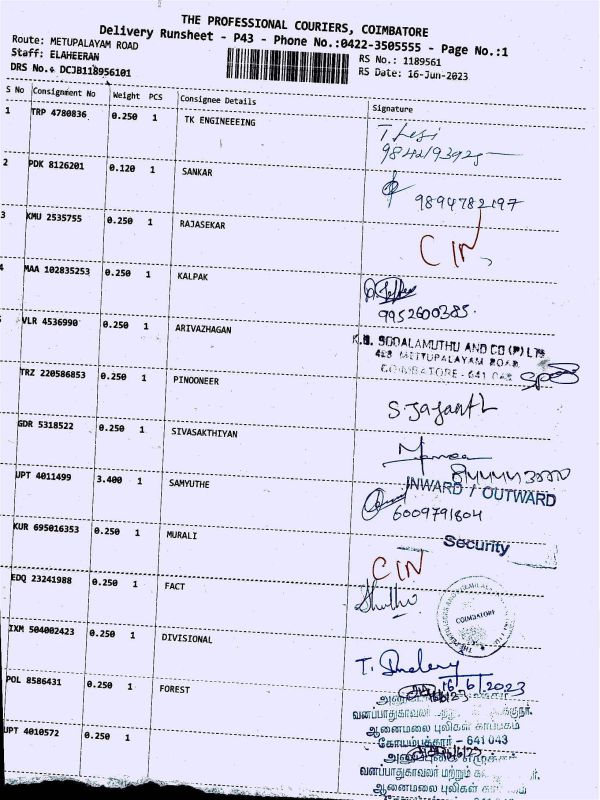 THE PROFESSIONAL COURIERS, COIMBATORE
Delivery Runsheet - P43 - Phone No.:0422-3505555 - Page No.:1
Route: METUPALAYAM ROAD
Staff: ELAHEERAN
RS No.: 1189561
DRS No.: DCJB118956101
RS Date: 16-Jun-2023
S No Consignment No Weight PCS Consignee Details Signature
1 TRP 4780836 0.250 1 TK ENGINEEEING
9842193925
2 PDK 8126201 0.120 1 SANKAR
9894782197
3 KMU 2535755 0.250 1 RAJASEKAR CIN
4 MAA 102835253 0.250 1 KALPAK
9952600385
VLR 4536990 0.250 1 ARIVAZHAGAN
K.B. SODALAMUTHU AND CO (P) LTD
428 METTUPALAYAM ROAD
COIMBATORE - 641 043
TRZ 220586853 0.250 1 PINOONEER S. Jayanth
GDR 5318522 0.250 1 SIVASAKTHIYAN
UPT 4011499 3.400 1 SAMYUTHE
INWARD / OUTWARD
6009791804
Security
KUR 695016353 0.250 1 MURALI CIN
EDQ 23241988 0.250 1 FACT
COIMBATORE
IXM 504002423 0.250 1 DIVISIONAL
16/6/2023
POL 8586431 0.250 1 FOREST
வனப்பாதுகாவலர்
ஆனைமலை புலிகள் காப்பகம்
கோயம்புத்தூர் - 641 043
UPT 4010572 0.250 1
வனப்பாதுகாவலர் மற்றும்
ஆனைமலை புலிகள்